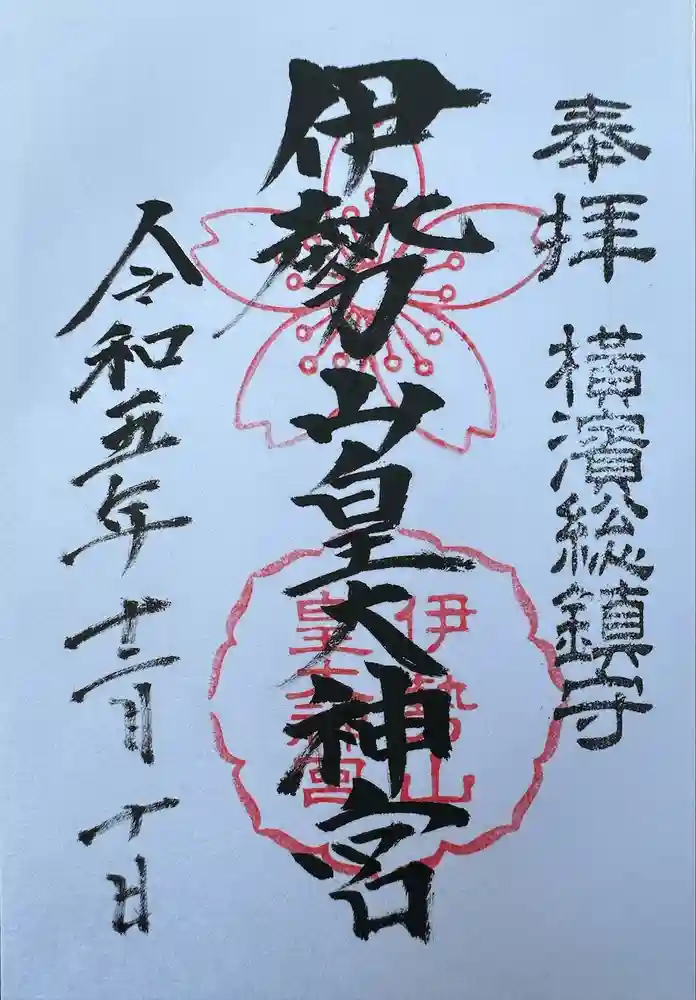 奉拝 横濱総鎮守
伊勢山皇大神宮
伊勢山
皇大神宮
令和五年十二月十日